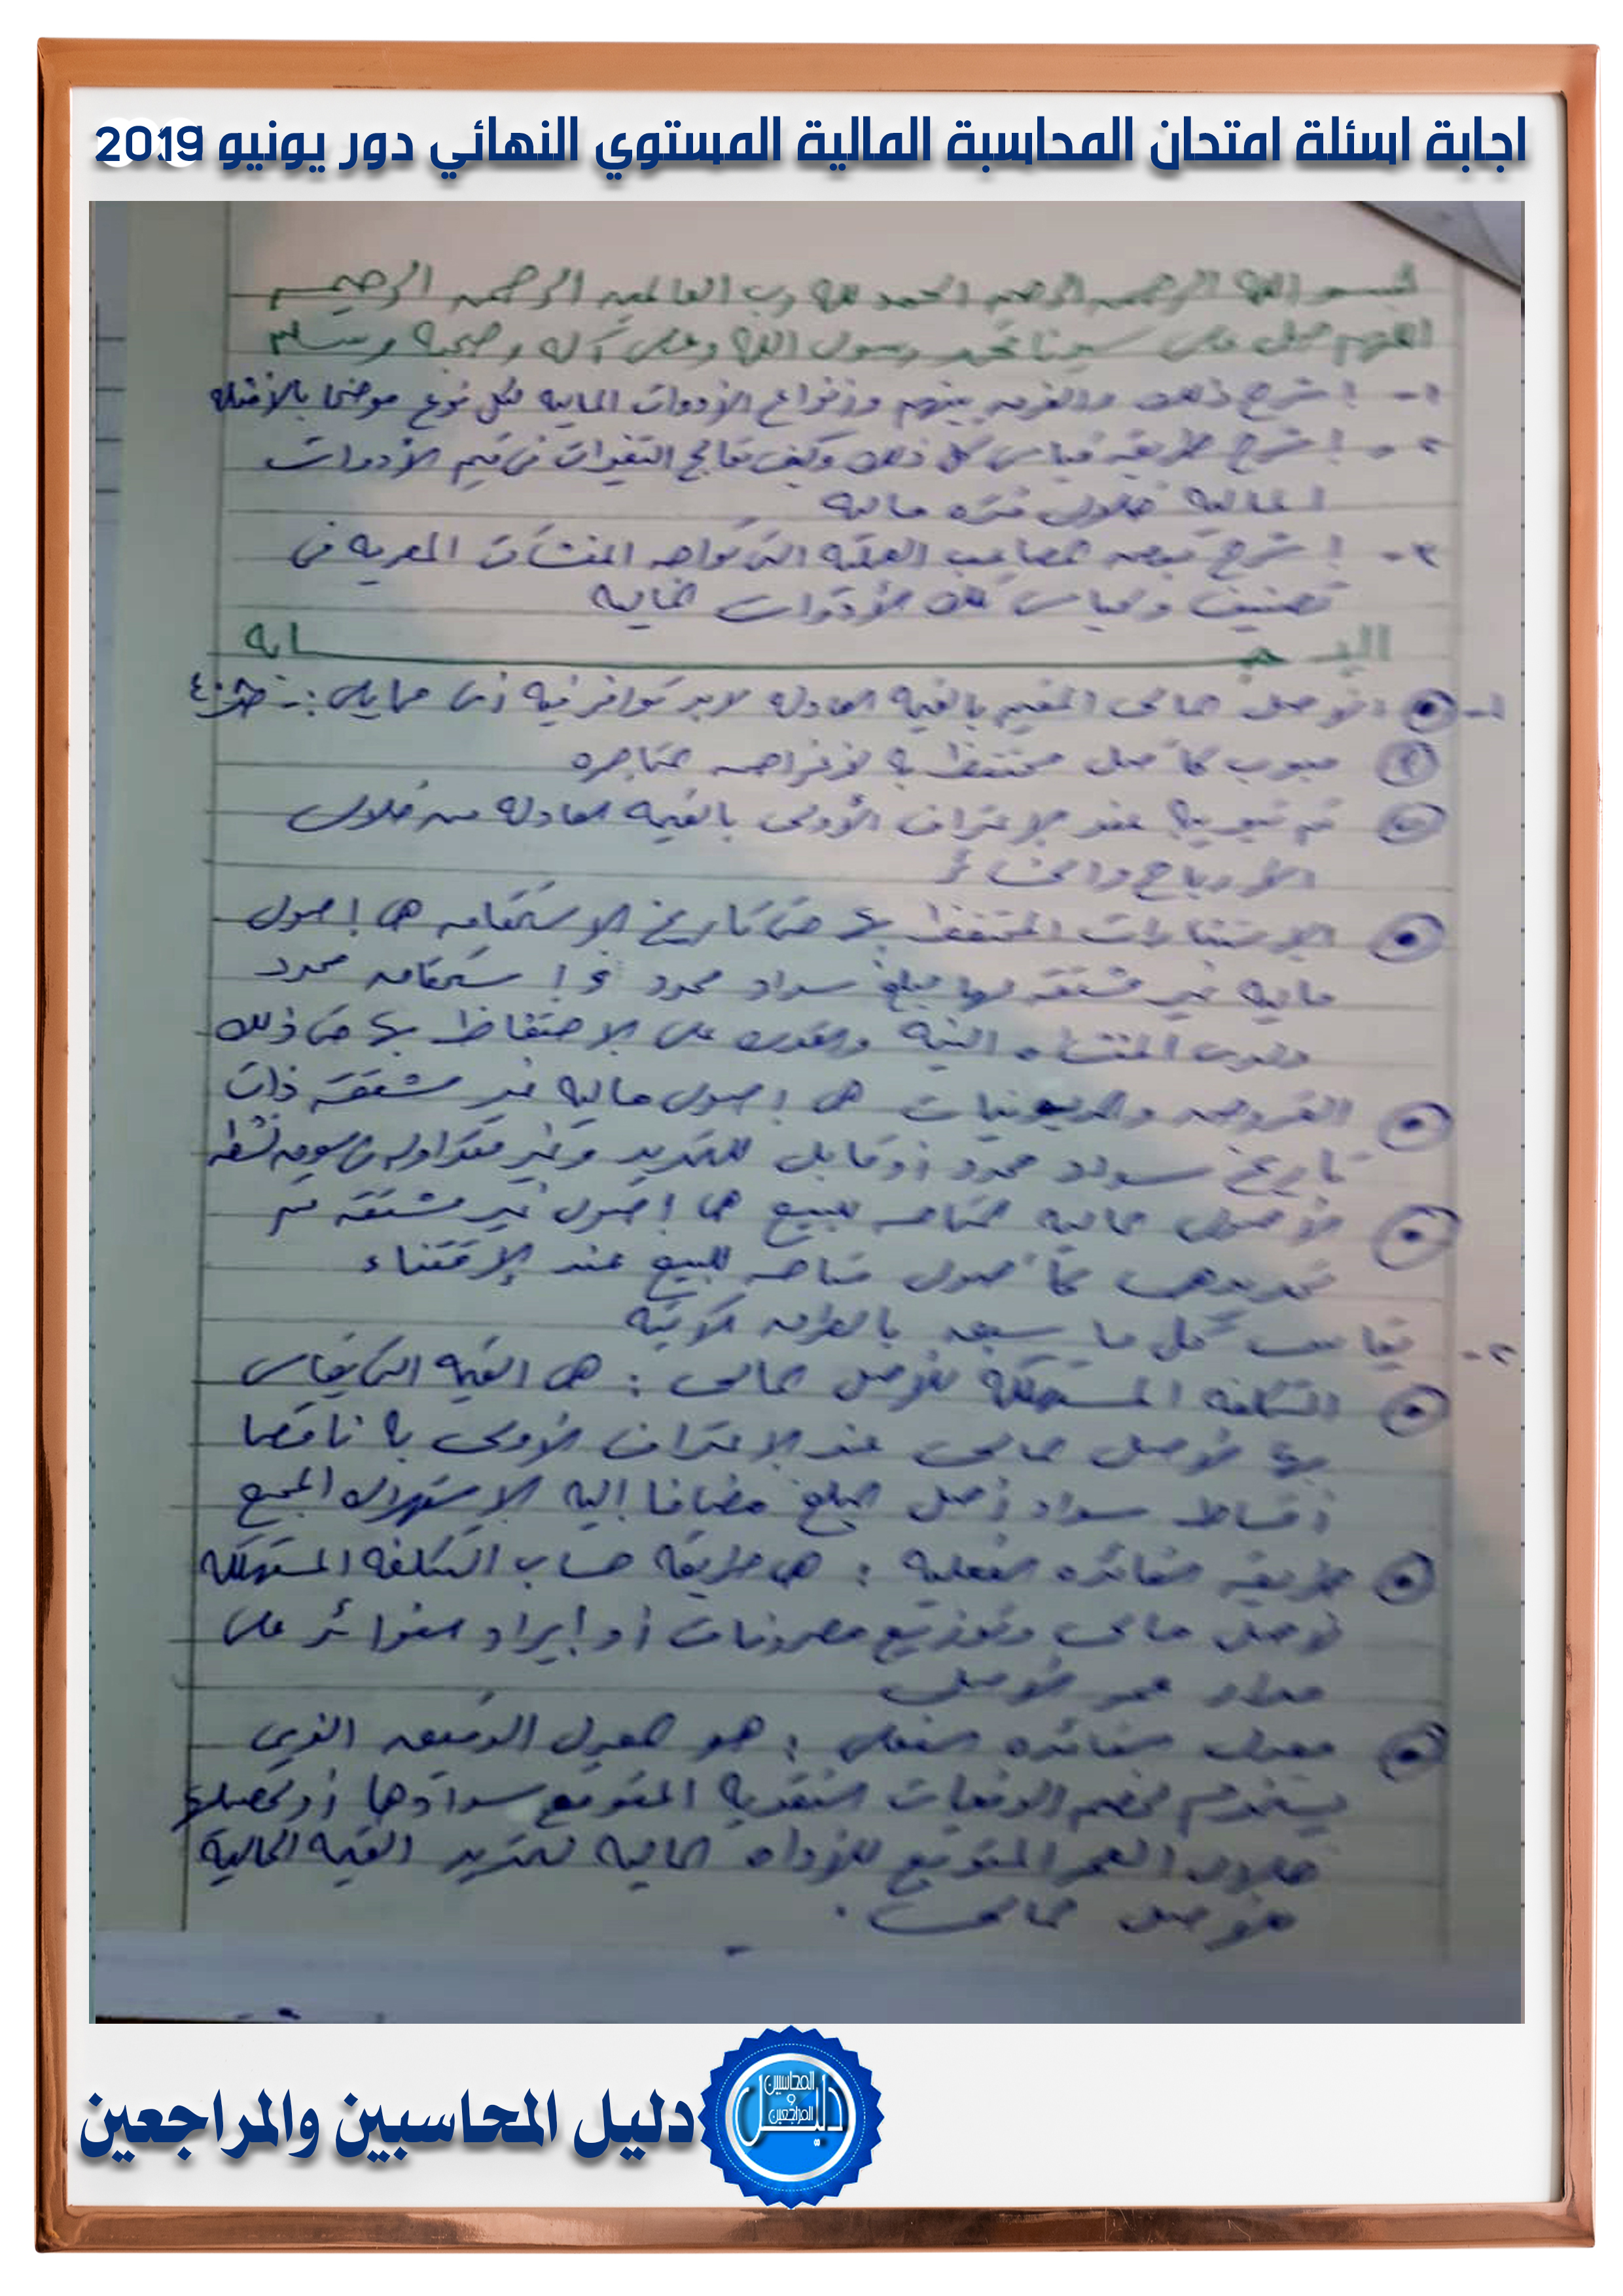 اجابة اسئلة امتحان المحاسبة المالية المستوي النهائي دور يونيو 2019
بسم الله الرحمن الرحيم الحمد لله رب العالمين الرحمن الرحيم
اللهم صل على سيدنا محمد رسول الله وعلى آله وصحبه وسلم
١- اشرح ذلك والفرق بينهم وأنواع الأدوات المالية لكل نوع موضحا بالأمثلة
٢- اشرح طريقه قياس كل ذلك وكيف تعالج التغيرات فى قيم الأدوات
المالية خلال فتره ماليه
٣- اشرح بعض المصاعب العمليه التى تواجه المنشآت المصريه فى
تصنيف وقياس تلك الأدوات الماليه
الإجابه
١- الأصل المالى المقيم بالقيمه العادله لابد توافر فيه أى مما يلى :-
مبوب كأصل محتفظ به لأغراض المتاجره
تم تبويبه عند الإعتراف الأولى بالقيمه العادله من خلال
الأرباح والخسائر
الإستثمارات المحتفظ بها حتى تاريخ الإستحقاق هى اصول
ماليه غير مشتقه لها مبلغ سداد محدد واستحقاق محدد
ولدى المنشاه النيه والقدره على الإحتفاظ بها حتى ذلك
القروض والمديونيات هى اصول ماليه غير مشتقه ذات
تاريخ سداد محدد أو قابل للتحديد وغير متداوله فى سوق نشطه
الأصول الماليه المتاحه للبيع هى اصول غير مشتقه تم
تحديدها كأصول متاحه للبيع عند الإقتناء
٢- يقاس كل ما سبق بالطرق الآتيه
التكلفه المستهلكه للأصل المالى : هى القيمه التى يقاس
بها الأصل المالى عند الإعتراف الأولى به ناقصا
أقساط سداد أصل المبلغ مضافا إليه الإستهلاك المجمع
طريقه الفائده الفعليه : هى طريقه حساب التكلفه المستهلكه
لأصل مالى وتوزيع مصروفات أو إيراد الفوائد على
مدار عمر الأصل
معدل الفائده الفعلى : هو المعدل الدقيق الذى
يستخدم لخصم الدفعات النقديه المتوقع سدادها أو تحصيلها
خلال العمر المتوقع للأداه الماليه لتحديد القيمه الحاليه
لأصل مالى .
دليل المحاسبين والمراجعين
دليل
المحاسبين
و
المراجعين